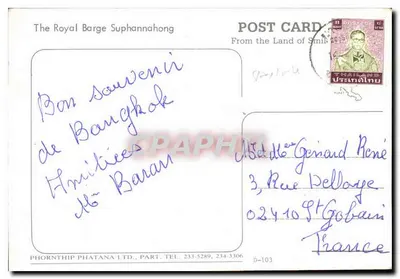 The Royal Barge Suphannahong
POST CARD
From the Land of Smi
THAILAND
ประเทศไทย
Bon souvenir
de Bangkok
Amitiées
Mr Baran
M et Mme Gérard René
3, Rue Delloye
02410 St Gobain
France
PHORNTHIP PHATANA LTD., PART. TEL. 233-5289, 234-3306
D-103